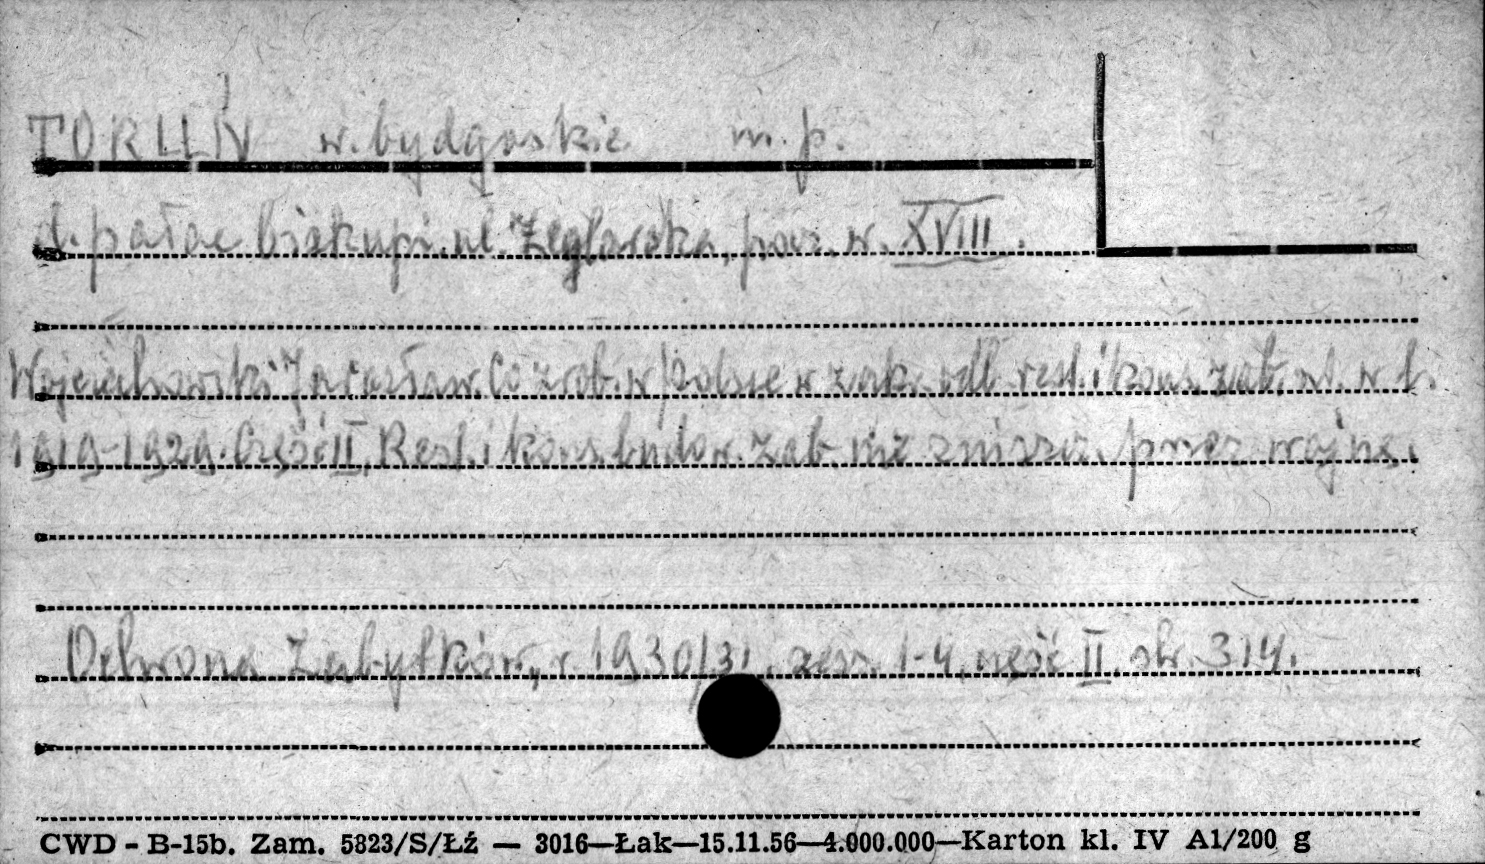 TORUŃ w. bydgoskie m. p.
d. pałac biskupi. ul. Żeglarska, pocz. w. XVIII.
Wojciechowski Jarosław. Co zrob. w Polsce w zak. odb. rest. i kons. zab. w l.
1919-1929. Część II. Rest. i kons. budow. zab. nie zniszcz. przez wojnę.
Ochrona Zabytków, r. 1930/31. zesz. 1-4, część II. str. 314.
CWD - B-15b. Zam. 5823/S/Łź — 3016—Łak—15.11.56—4.000.000—Karton kl. IV A1/200 g